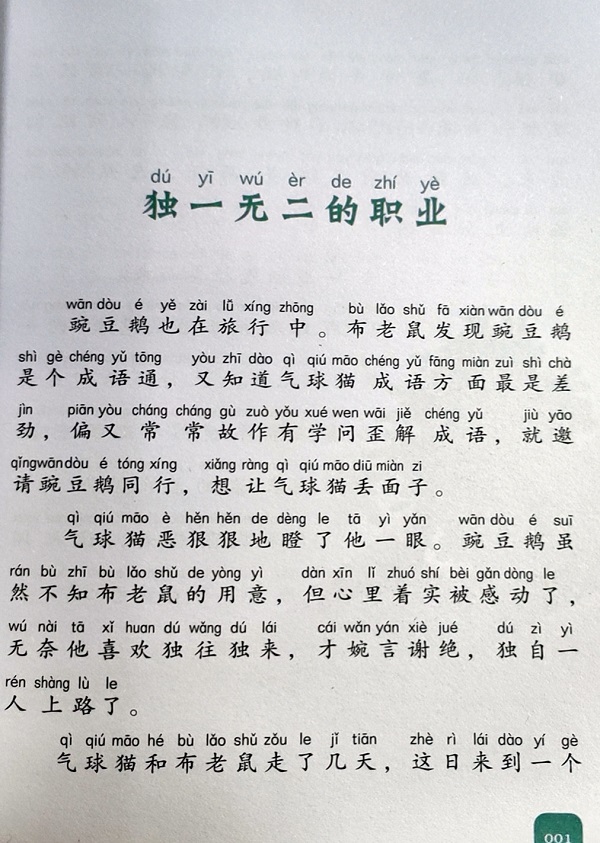 dú yī wú èr de zhí yè
独一无二的职业
wān dòu é yě zài lǚ xíng zhōng bù lǎo shǔ fā xiàn wān dòu é
豌豆鹅也在旅行中。布老鼠发现豌豆鹅
shì gè chéng yǔ tōng yòu zhī dào qì qiú māo chéng yǔ fāng miàn zuì shì chà
是个成语通，又知道气球猫成语方面最是差
jìn piān yòu cháng cháng gù zuò yǒu xué wen wāi jiě chéng yǔ jiù yāo
劲，偏又常常故作有学问歪解成语，就邀
qǐng wān dòu é tóng xíng xiǎng ràng qì qiú māo diū miàn zi
请豌豆鹅同行，想让气球猫丢面子。
qì qiú māo è hěn hěn de dèng le tā yì yǎn wān dòu é suī
气球猫恶狠狠地瞪了他一眼。豌豆鹅虽
rán bù zhī bù lǎo shǔ de yòng yì dàn xīn lǐ zhuó shí bèi gǎn dòng le
然不知布老鼠的用意，但心里着实被感动了，
wú nài tā xǐ huan dú wǎng dú lái cái wǎn yán xiè jué dú zì yì
无奈他喜欢独往独来，才婉言谢绝，独自一
rén shàng lù le
人上路了。
qì qiú māo hé bù lǎo shǔ zǒu le jǐ tiān zhè rì lái dào yí gè
气球猫和布老鼠走了几天，这日来到一个
001